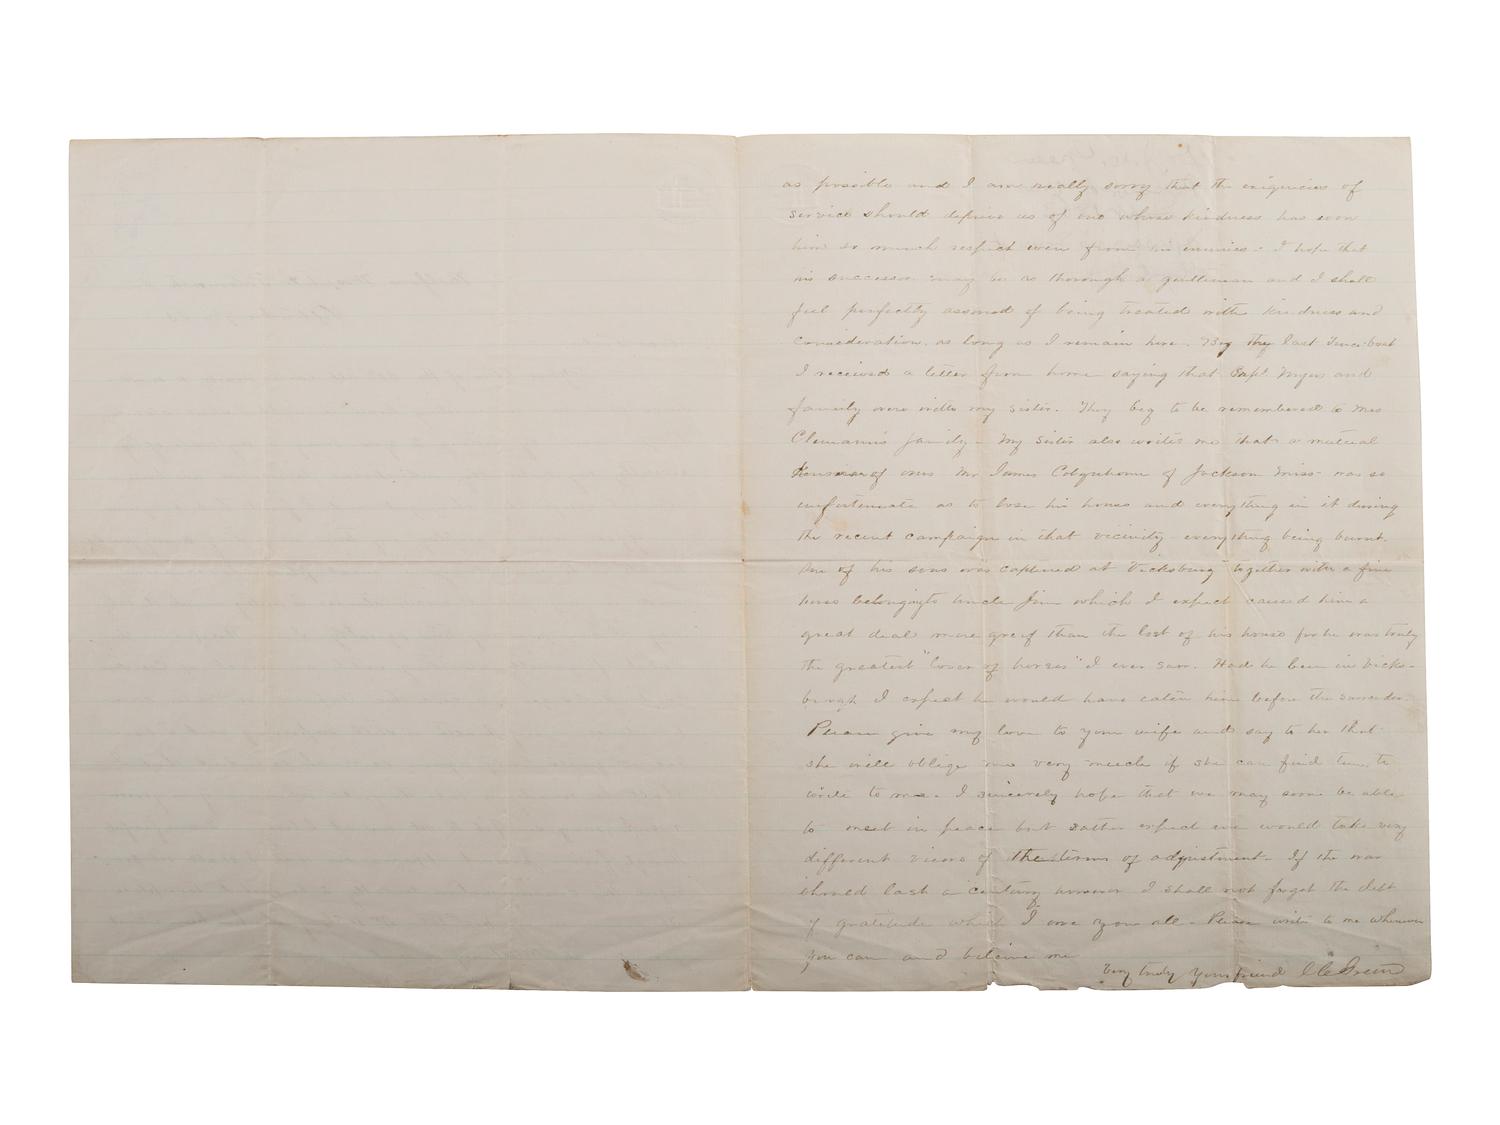 as possible and I am really sorry that the exigencies of
service should deprive us of one whose kindness has won
him so much respect even from his enemies - I hope that
his successor may be as thorough a gentleman and I shall
feel perfectly assured of being treated with kindness and
consideration, as long as I remain here. By the last Truce-boat
I received a letter from home saying that Capt. Myers and
family were with my sister. They beg to be remembered to Mrs
family - My sister also writes me that a mutual
of ours Mr James of Jackson Miss- was so
unfortunate as to lose his house and everything in it during
the recent campaign in that vicinity - everything being burnt.
One of his sons was captured at Vicksburg together with a fine
horse belonging to Uncle Jim which I expect caused him a
great deal more greif than the lost of his house for he was truly
the greatest "lover of horses" I ever saw. Had he been in Vicks-
burgh I expect he would have eaten him before the surrender.
Please give my love to your wife and say to her that
she will oblige me very much if she can find time to
write to me. I sincerely hope that we may soon be able
to meet in peace but rather expect we would take very
different views of the terms of adjustment - If the war
should last a century however I shall not forget the debt
of gratitude which I owe you all - Please write to me whenever
you can and beleive me
Very truly Your friend